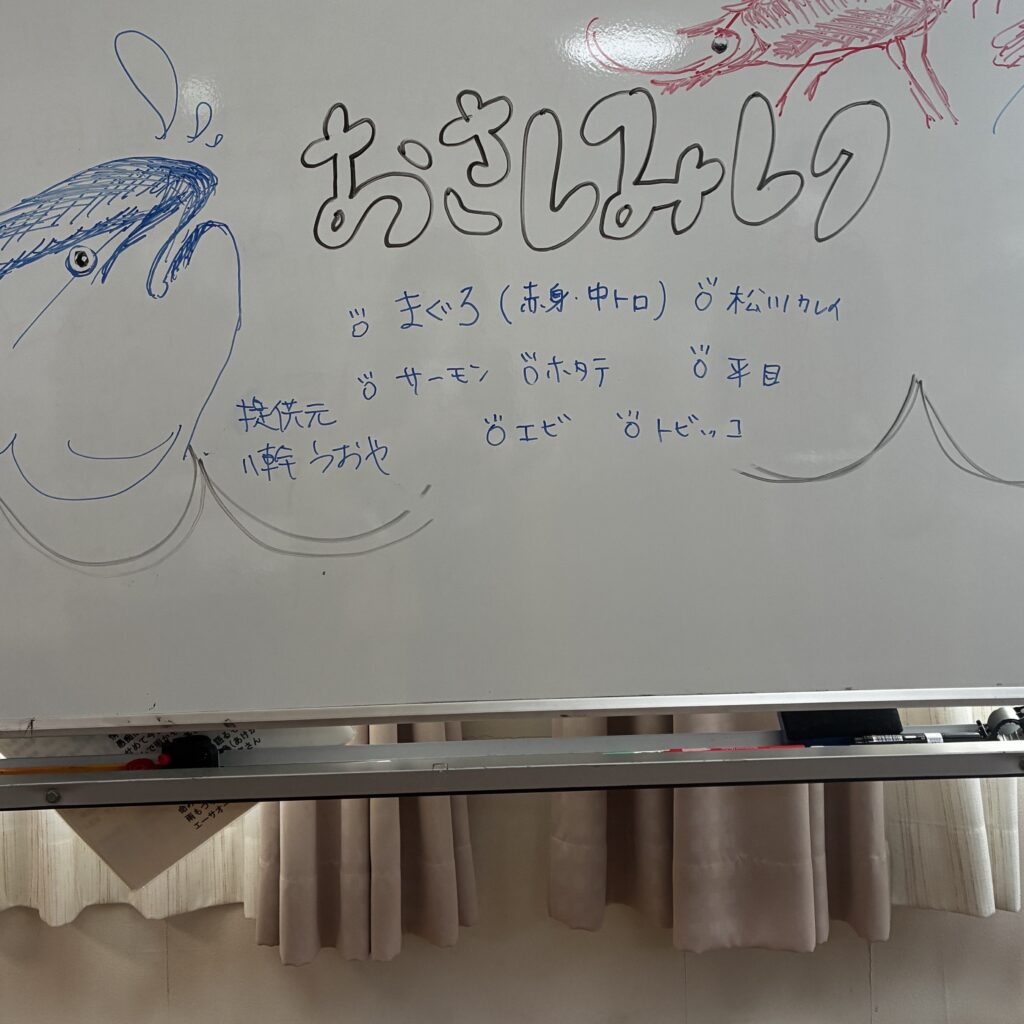 おさしみレク
まぐろ(赤身・中トロ) 松川カレイ
サーモン ホタテ 平目
エビ トビッコ
提供元
うおや